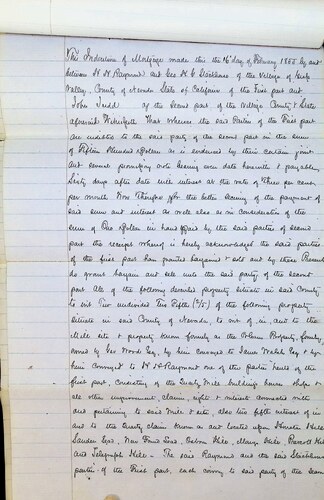 This Indenture of Mortgage made this the 16th day of February 1865 by and
between H H Raymond and Geo H G Stackhouse of the Village of Grass
Valley, County of Nevada State of California of the First part and
John Judd of the Second part of the Village County & State
aforesaid Witnesseth That whereas the said Parties of the First part
are indebted to the said party of the second part in the sum
of Fifteen Hundred Dollars as is evidenced by their certain joint
and several promissory note bearing even date herewith & payable
Sixty days after date with interest at the rate of Three per cent
per month Now Therefore for the better securing of the payment of
said sum and interest as well also as in consideration of the
sum of One Dollar in hand paid by the said parties of second
part the receipt whereof is hereby acknowledged the said parties
of the first part have granted bargained & sold and by these Presents
do grant bargain and sell unto the said party of the second
part All of the following described property situate in said County
to wit Five undivided Fifths (2/5) of the following property
situate in said County of Nevada, to wit of in, and to the
Mill site & property known formerly as the property, formerly
owned by Geo Woods Esq, by him conveyed to Walsh Esq & by
him conveyed to H H Raymond one of the parties hereto of the
first part, consisting of the Quartz Mill building house shops &
all other improvements, claims, right & interest connected with
and pertaining to said Mill & site, also two fifths interest of in
and to the Quartz claims known as and located upon Hill
Ledge, New York Hill, Hill, Hill
and Telegraph Hill. The said Raymond and the said Stackhouse
parties of the First part, each convey to said party of the second